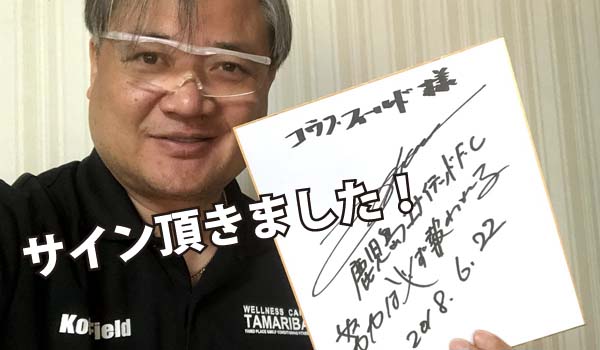 コウズ・フィールド様
鹿児島ユナイテッドF.C
努力は必ず報われる
2018.6.22
サイン頂きました!
Ko Field
WELLNESS CA
TAMARIBA
THIRD PLACE SHELF CONDITIONING FITNE